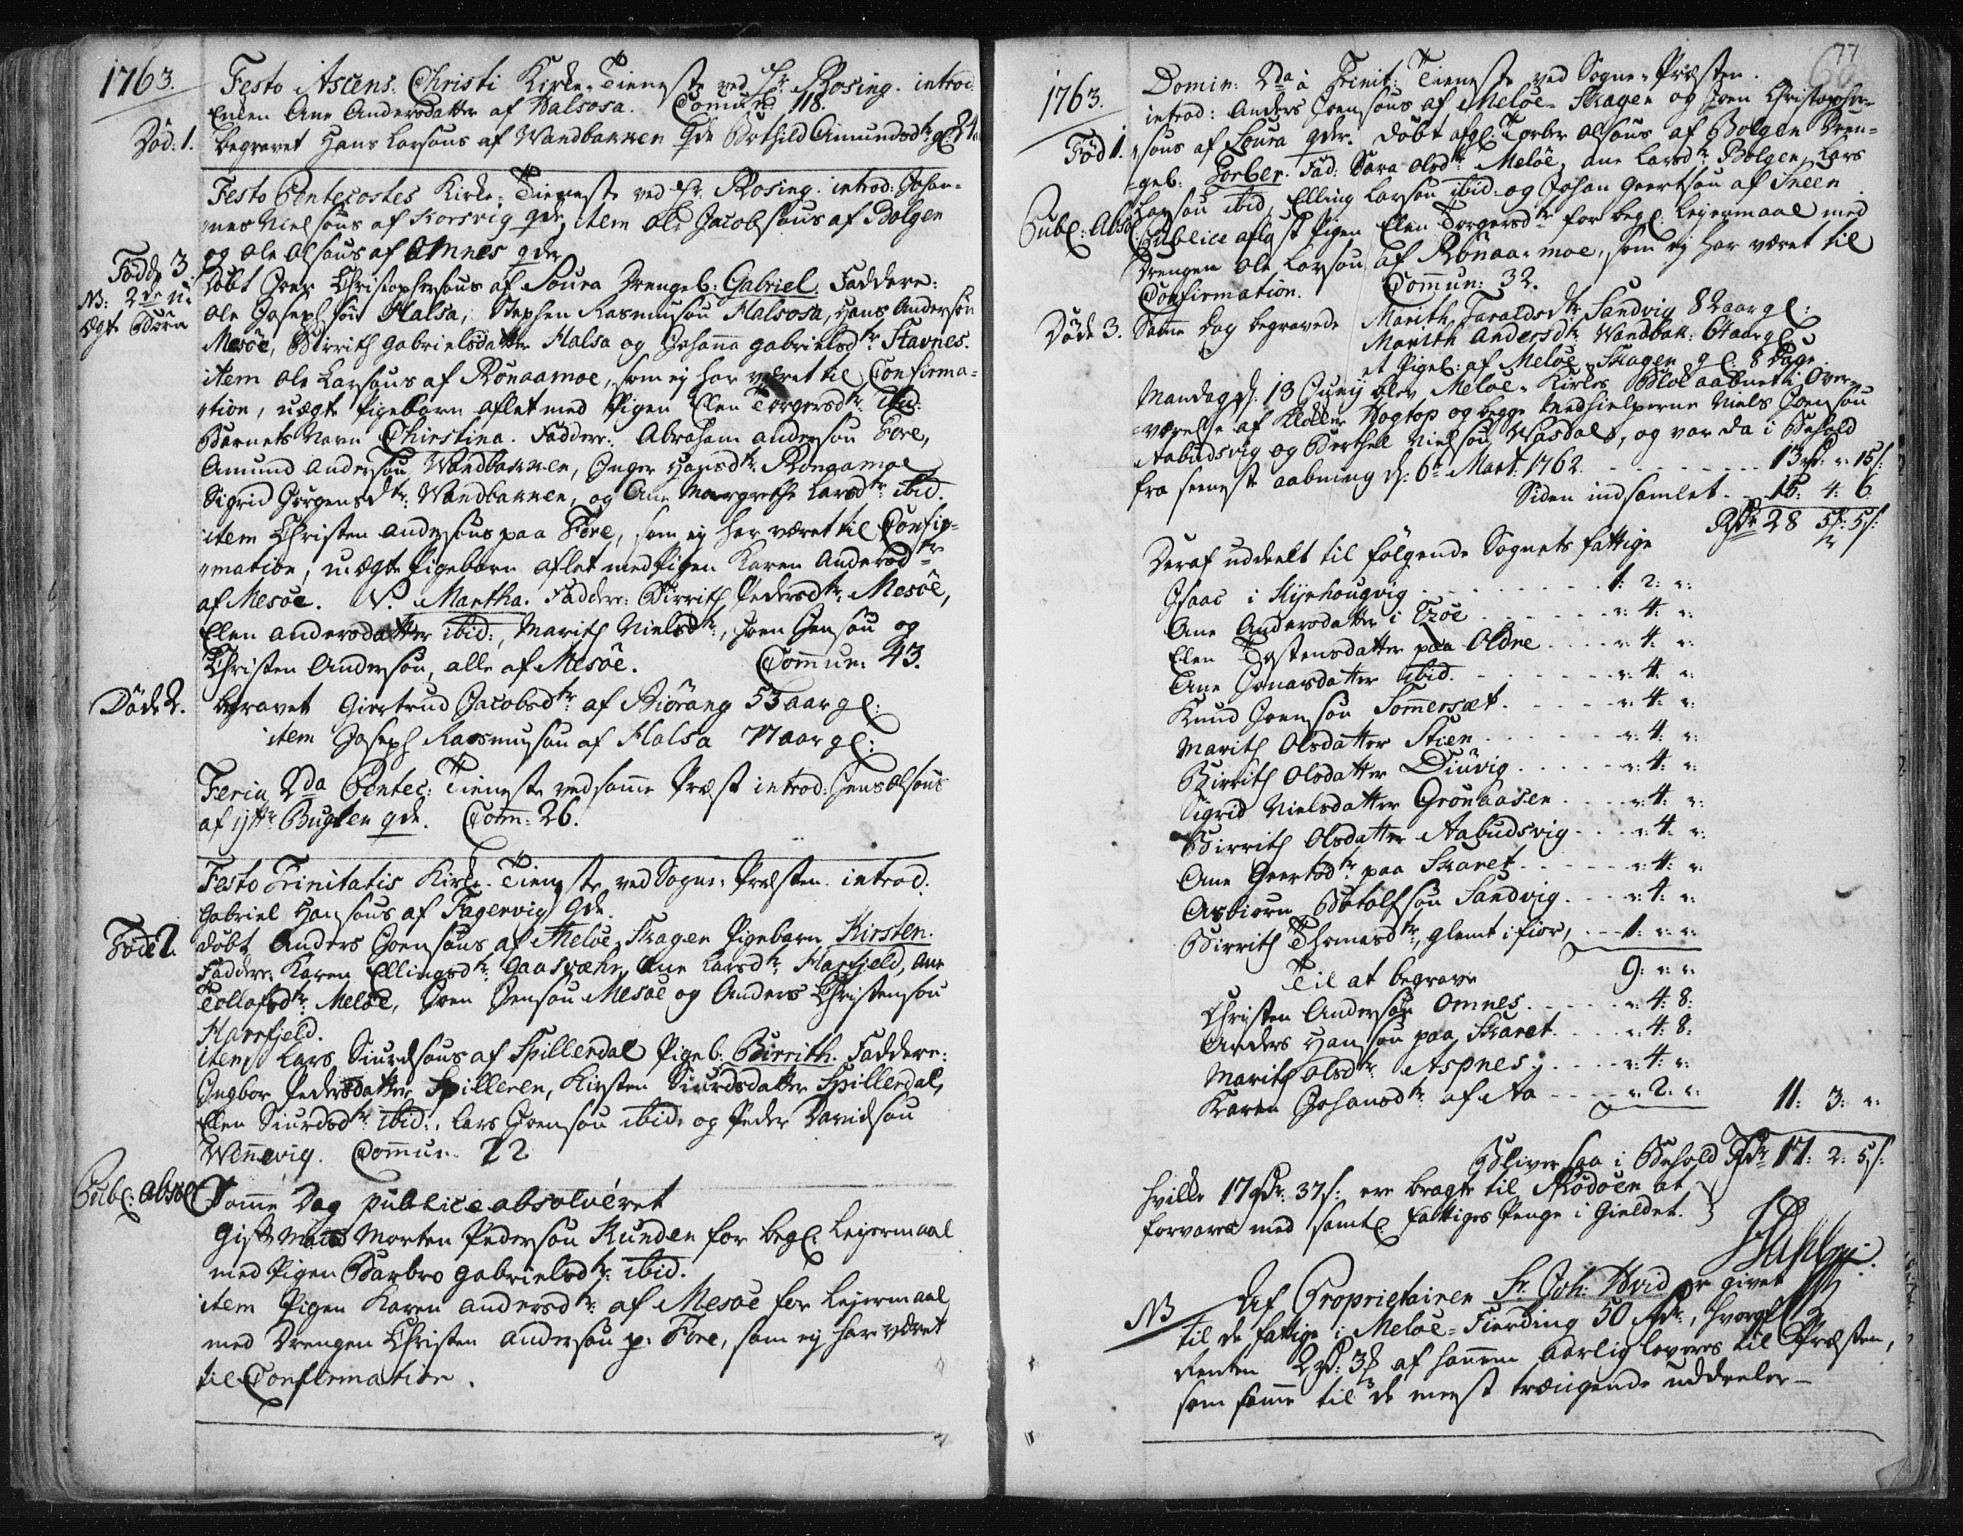 1763.
Festo Ascens: Christi Kirke-Tieneste ved Hr. Rosing. introd:
Enken Ane Andersdatter af Halsosa. Comun: 118.
Død: 1. begravet Hans Larsøns af Vandbakken qde Bothild Amundsdtr: gl:
Festo Pentecostes Kirke-Tieneste ved Hr. Rosing. introd: Johan-
nes Nielsøns af Korsvig qde, item Ole Jacobsøns af Bolgen
og Ole Olsøns af Omnes qde
Fødde 3. døbt Joen Christophersøns af Soura Drengeb: Gabriel. Faddere:
NB: 2de u- Ole Josephsøn Halsa, Stephen Rasmusøn Halsosa, Hans Andersøn
ægte Børn Mesøe, Birrith Gabrielsdatter Halsa og Johanna Gabrielsdtr Stavnes.
item Ole Larsøns af Rønaamoe, som ej har været til Confirma-
tion, uægte Pigebarn aflet med Pigen Elen Torgersdtr: ibid:
Barnets Navn Chirstina. Faddere: Abraham Andersøn Fore,
Amund Andersøn Vandbakken, Inger Hansdtr: Rongamoe
Sigrid Jørgensdtr: Vandbakken, og Ane Margrethe Larsdtr: ibid.
item Christen Andersøns paa Fore, som ej har været til Confir-
mation, uægte Pigebarn aflet med Pigen Karen Andersdtr
af Mesøe. N. Martha. Faddere: Birrith Pedersdtr: Mesøe,
Elen Andersdatter ibid:, Marith Nielsdtr:, Joen Jensøn og
Christen Andersøn, alle af Mesøe. Comun: 43.
Døde 2. begravet Giertrud Jacobsdtr: af Skiørang 53 aar gl:
item Joseph Rasmusøn af Halsa 77 aar gl:
Feria 2da Pentec: Tieneste ved samme Præst introd: Jens Olsøns
af yttr Bugten qde. Com: 26.
Festo Trinitatis Kirke-Tieneste ved Sogne-Præsten. introd.
Gabriel Hansøns af Fagervig qde.
Fødde 2. døbt Anders Joensøns af Meløe-Skagen Pigebarn Kirsten.
Faddere: Karen Ellingsdtr: Gaasvær, Ane Larsdtr: Harfjeld, Ane
Tollofsdtr: Meløe, Joen Jensøn Mesøe og Anders Christensøn
Harrfjeld.
item Lars Siurdsøns af Spillerdal Pigeb: Birrith. Faddere:
Ingbor Pedersdatter Spilleren, Kirsten Siurdsdatter Spillerdal,
Elen Siurdsdtr: ibid:, Lars Joensøn ibid. og Peder Davidsøn
Wennevig. Comun: 22
Publ: Absol: Samme Dag publice absolveret
Gift Mand Morten Pedersøn Kunden for begl: Leiermaal
med Pigen Barbro Gabrielsdtr: ibid.
item Pigen Karen Andersdtr: af Mesøe for Lejermaal
med Drengen Christen Andersøn p: Fore, som ej har været
til Confirmation.
77
1763. Domin: 2da à Trinit: Tieneste ved Sogne-Præsten.
introd: Anders Joensøns af Meløe-Skagen og Joen Christopher-
Fød 1. søns af Soura qder. døbt afgl: Torber Olsøns af Bolgen Dren-
geb: Torber. Fad: Sara Olsdtr: Meløe, Ane Larsdtr: Bolgen, Lars
Hansøn ibid, Elling Larsøn ibid. og Johan Geertsøn af Sneen
Publ: Absol: Publice afløst Pigen Elen Torgersdtr for begl: Leiermaal med
Drengen Ole Larsøn af Rønaa-moe, som ej har været til
Confirmation. Comun: 32.
Døde 3. Samme Dag begravede Marith Taraldsdtr Sandvig 82 aar gl:
Marith Andersdtr: Vandbak: 6 aar gl:
et Pigeb: af Meløe-Skagen gl: 8 Dage.
Mandag d: 13 Junij blev Meløe-Kirkes Blok aabnet i Over-
værelse af Klokker Hogtop og begge Medhielperne Niels Joensøn
Aabudsvig og Berthel Nielsøn Vasdal, og var da i Behold
fra seeneste aabning d: 6te Mart: 1762. 13 rd: " 15 s:
Siden indsamlet. 15: 4: 6
Rdr 28 5 s: 5 s:
Deraf uddeelt til følgende Sognets fattige
Isaac i Kjøhougvig 1: 2: ":
Ane Andersdatter i Træe ": 4: ":
Elen Tostensdatter paa Oldne ": 4: ":
Ane Jonasdatter ibid. ": 4: ":
Knud Joensøn Sommerset. ": 4: ":
Marith Olsdatter Stien ": 4: ":
Birrith Olsdatter Diuvig ": 4: ":
Sigrid Nielsdatter Grønaasen ": 4: ":
Birrith Olsdatter Aabudsvig ": 4: ":
Ane Geertsdtr paa Skaret ": 4: ":
Asbiørn Botolfsøn Sandvig ": 4: ":
Birrith Thomasdtr:, glemt i fior, 1: ": ":
Til at begrave 9: ": ":
Christen Andersøn Omnes ": 4: 8:
Anders Hansøn paa Skaret ": 4: 8:
Marith Olsdtr: Aspnes ": 4: ":
Karen Johansdtr: af Aa ": 2: ": 11: 3: ":
Bliver saa i Behold Rdr 17: 2: 5 s:
hvilke 17 Rdr: 37 s: ere bragte til Rødøen at
forvares med samtl: fattiges Penge i Gieldet.
NB Af Proprietairen Sr. Joh: Hvid er givet
til de fattige i Meløe-Fierding 50 Rdr:, hvoraf
Renten 2 rd: 3 af hannem aarlig leveres til Præsten,
som samme til de meest trængende uddeeler